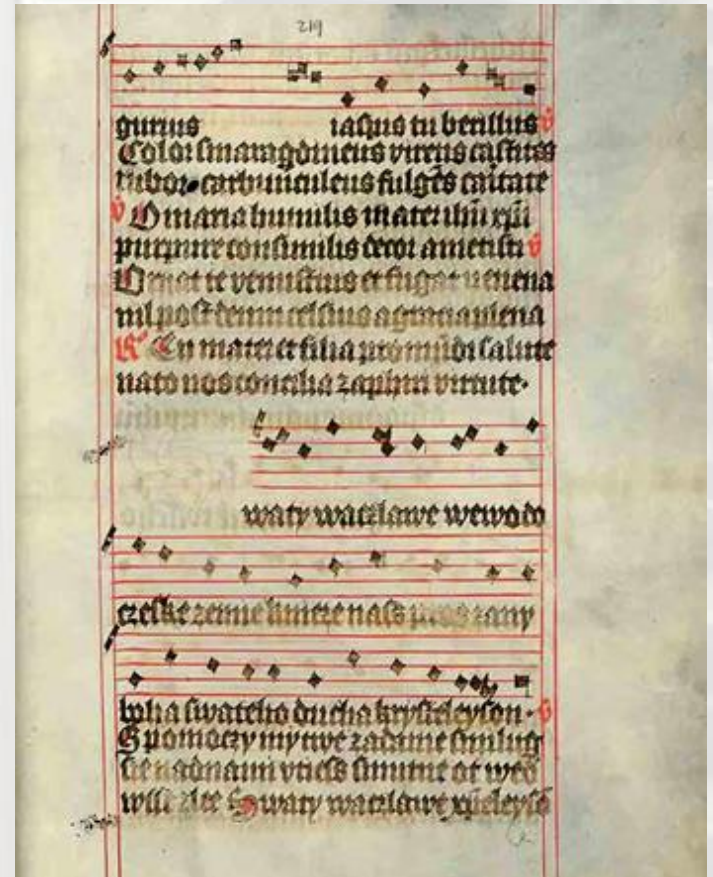 219
gurius iaspis tu berillus v
Color smaragdineus virens castitas
rubor carbunculeus fulgēs caritate
v O maria humilis mater ihū xpī
purpure consimilis decor ametisti v
Ornat te venustius et fugat venena
nil post deum celsius a gratia plena
R En mater et filia pro mūdi salute
nato nos concilia zaphiri virtute
waty waczlawe wewodo
czeske zemie knieze nass pros zany
boha swateho ducha krysteleyson v
Spomoczy my twe zadame smilug
sie nad nami vtiess smutne ot wed
wsse zlee swaty waczlawe xpeleysō